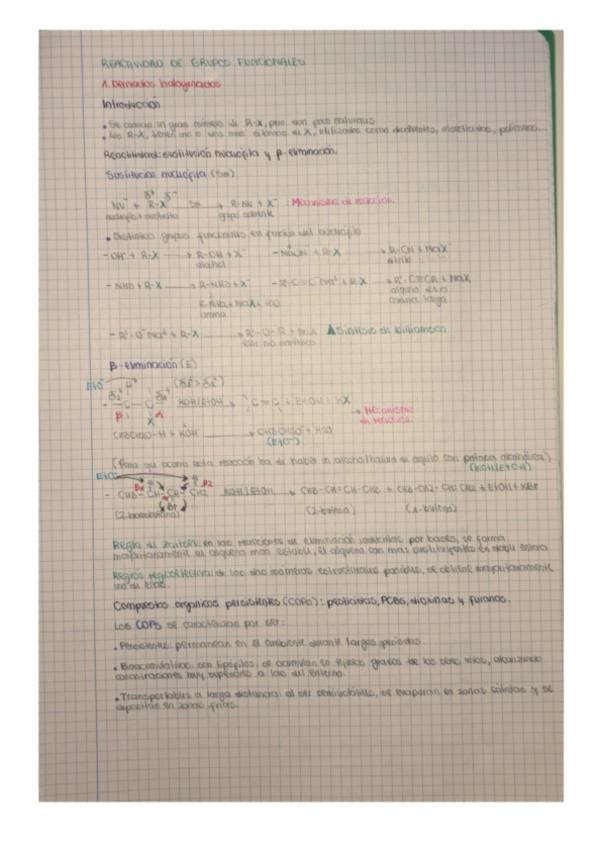 REACTIVIDAD DE GRUPOS FUNCIONALES
1. Derivados halogenados
Introducción
• Se conocen un gran número de R-X, pero son poco naturales.
• Los R-X, tienen uno o más átomos de X, utilizados como disolventes, insecticidas, polímeros...
Reactividad: sustitución nucleófila y β-eliminación.
Sustitución nucleófila (Sn)
δ+ δ-
Nu- + R-X Sn → R-Nu + X- : Mecanismo de reacción
grupo saliente
• Distintos grupos funcionales en función del nucleófilo
- OH- + R-X → R-OH + X- - NaCN + R-X → R-CN + NaX
alcohol nitrilo
- NH3 + R-X → R-NH3 + X- - R'-C≡C-Na+ + R-X → R'-C≡CR + NaX
amina cadena larga
- R'-O-Na+ + R-X → R'-O-R + NaX ▲Síntesis de Williamson
β-eliminación (E)
EtO-
KOH/EtOH → C=C + EtOH + KX
β α
X
→ Mecanismo de reacción
CH3CH2O-H + KOH → CH3CH2O- + H2O
(EtO-)
(Para que ocurra esta reacción ha de haber en alcohol/halуro de alquilo con potasa alcohólica)
(KOH/EtOH)
EtO-
- CH3-CH-CH-CH2 KOH/EtOH → CH3-CH=CH-CH3 + CH3-CH2-CH=CH2 + EtOH + KBr
Br
(2-bromobutano) (2-buteno) (1-buteno)
Regla de Zaitsev: en las reacciones de eliminación inducidas por bases, se forma
mayoritariamente el alqueno más estable, el alqueno con más sustituyentes en doble enlace
Reacción regioselectiva: de los dos isómeros estructurales posibles, se obtiene mayoritariamente
uno de ellos.
Compuestos orgánicos persistentes (COPs): pesticidas, PCBs, dioxinas y furanos.
Los COPs se caracterizan por ser:
• Persistentes: permanecen en el ambiente durante largos periodos.
• Bioacumulativos: son lipófilos, se acumulan en tejidos grasos de los seres vivos, alcanzando
concentraciones muy superiores a las del entorno.
• Transportables a larga distancia: al ser semivolátiles, se evaporan en zonas cálidas y se
depositan en zonas frías.